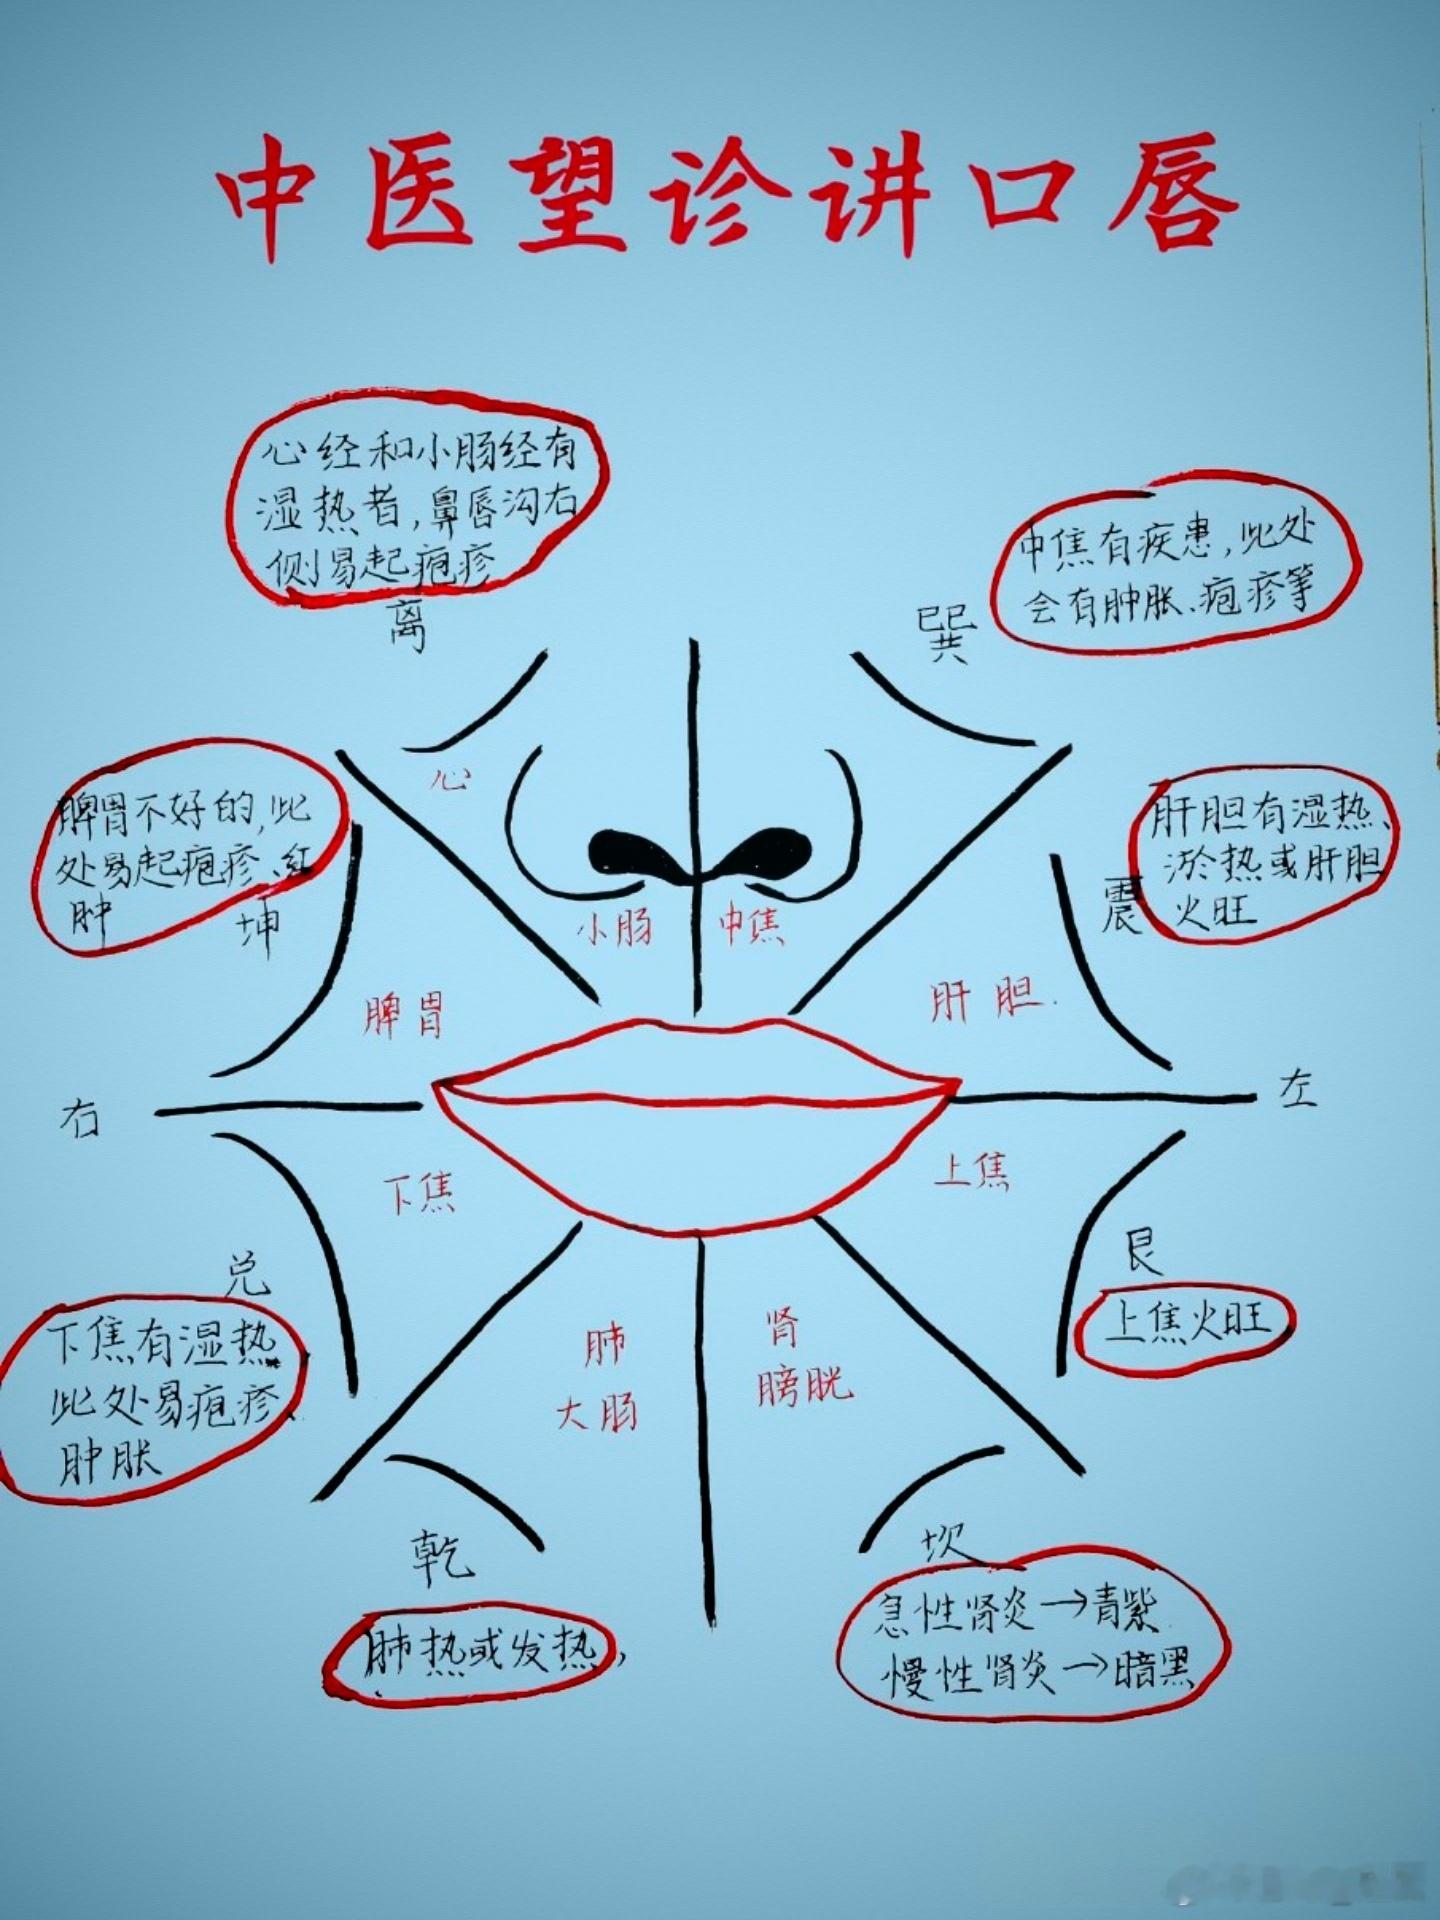 中医望诊讲口唇
心经和小肠经有
湿热者,鼻唇沟右
侧易起疱疹
离
巽
中焦有疾患,此处
会有肿胀、疱疹等
心
脾胃不好的,此
处易起疱疹、红
肿
坤
肝胆有湿热、
淤热或肝胆
火旺
震
小肠
中焦
脾胃
肝胆
右
左
下焦
上焦
兑
下焦有湿热
此处易疱疹、
肿胀
艮
上焦火旺
肺
大肠
肾
膀胱
乾
肺热或发热,
坎
急性肾炎→青紫
慢性肾炎→暗黑